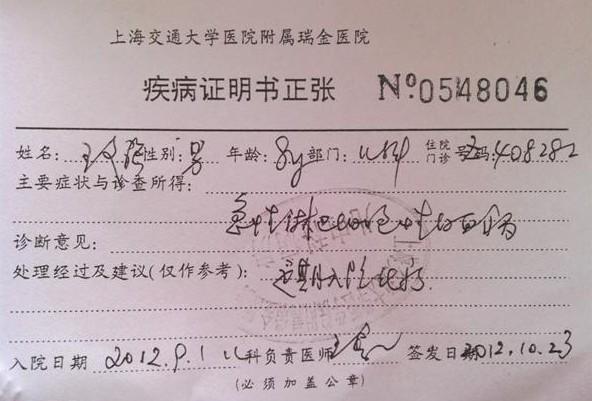 上海交通大学医院附属瑞金医院
疾病证明书正张 №0548046
姓名: 性别: 男 年龄: 8y 部门: 儿科 住院门诊号码: 408282
主要症状与诊查所得:
急性淋巴细胞性白血病
诊断意见:
处理经过及建议(仅作参考): 定期入院化疗
入院日期 2012.9.1 儿科负责医师 签发日期 2012.10.23
(必须加盖公章)